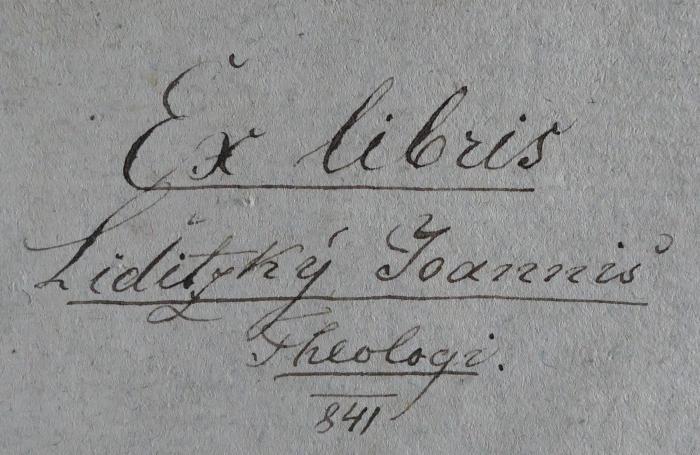 Ex libris
Liditzký Joannis
Theologi.
841